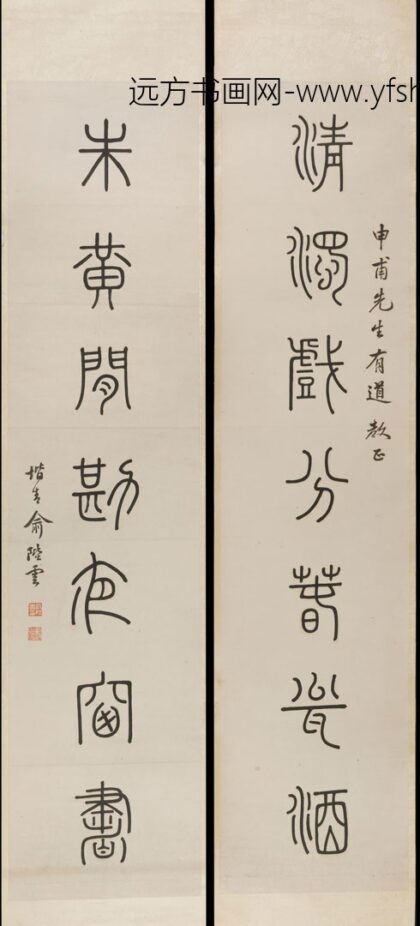 远方书画网-www.yfsh
申甫先生有道教正
清濁戲分春瓮酒
朱黃閒勘夜窗書
堦青俞陛雲